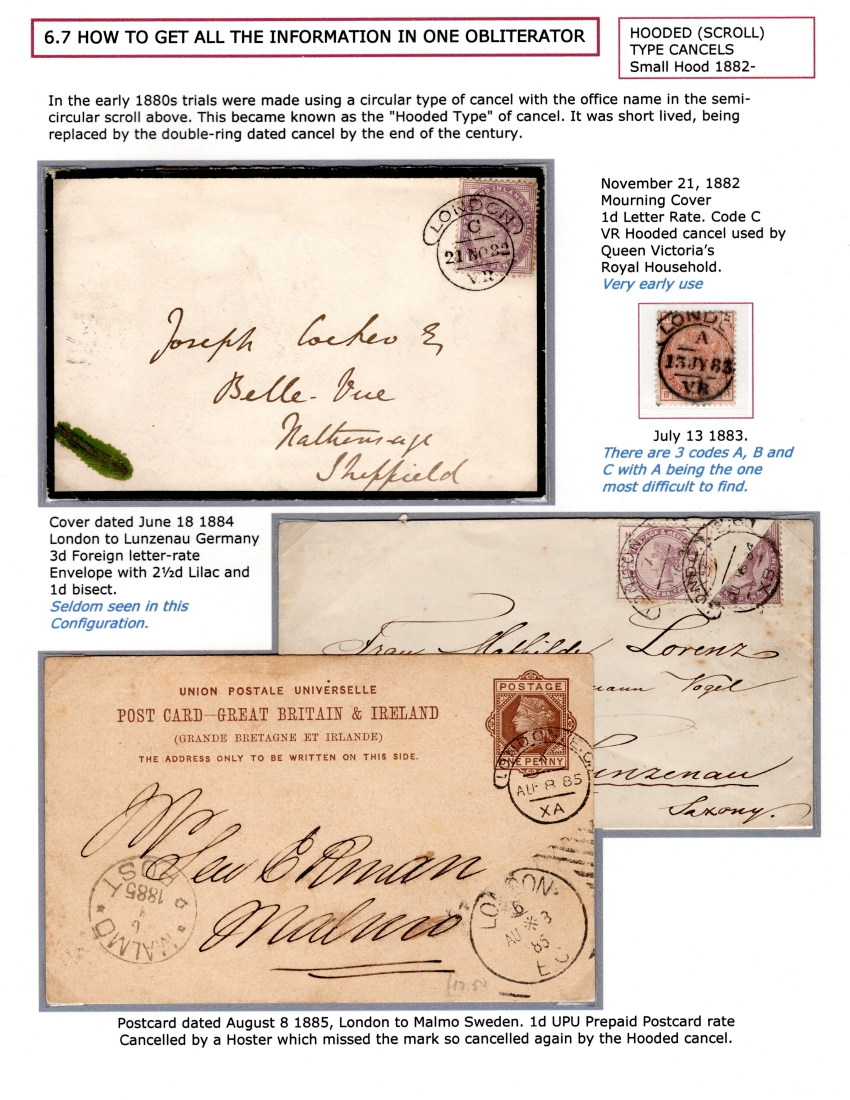 6.7 HOW TO GET ALL THE INFORMATION IN ONE OBLITERATOR
HOODED (SCROLL)
TYPE CANCELS
Small Hood 1882-
In the early 1880s trials were made using a circular type of cancel with the office name in the semi-
circular scroll above. This became known as the "Hooded Type" of cancel. It was short lived, being
replaced by the double-ring dated cancel by the end of the century.
LONDON
C
21 NO 82
V.R
Joseph
Belle-Vue
Sheffield
November 21, 1882
Mourning Cover
1d Letter Rate. Code C
VR Hooded cancel used by
Queen Victoria’s
Royal Household.
Very early use
LOND
A
13 JY 83
VR
July 13 1883.
There are 3 codes A, B and
C with A being the one
most difficult to find.
Cover dated June 18 1884
London to Lunzenau Germany
3d Foreign letter-rate
Envelope with 2½d Lilac and
1d bisect.
Seldom seen in this
Configuration.
LONDON
Frau Mathilde Lorenz
Vogel
Lunzenau
Saxony.
UNION POSTALE UNIVERSELLE
POST CARD–GREAT BRITAIN & IRELAND
(GRANDE BRETAGNE ET IRLANDE)
THE ADDRESS ONLY TO BE WRITTEN ON THIS SIDE.
POSTAGE
ONE PENNY
LONDON.E.C.
AU 8 85
XA
Malmo
MALMÖ
1885
POST
LONDON
AU 8
85
E.C
17.50
Postcard dated August 8 1885, London to Malmo Sweden. 1d UPU Prepaid Postcard rate
Cancelled by a Hoster which missed the mark so cancelled again by the Hooded cancel.